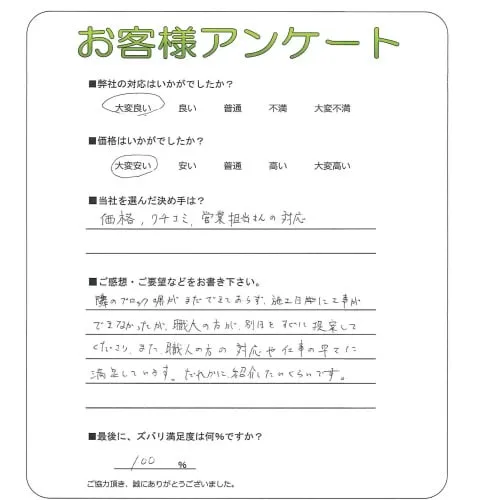 お客様アンケート
■弊社の対応はいかがでしたか？
大変良い 良い 普通 不満 大変不満
■価格はいかがでしたか？
大変安い 安い 普通 高い 大変高い
■当社を選んだ決め手は？
価格，クチコミ，営業担当さんの対応
■ご感想・ご要望などをお書き下さい。
隣のブロック塀がまだできておらず，施工日時に工事が
できなかったが，職人の方が，別日をすぐに提案して
くださり，また，職人の方の対応や仕事の早さに
満足しています。だれかに紹介したいくらいです。
■最後に、ズバリ満足度は何%ですか？
100 %
ご協力頂き、誠にありがとうございました。